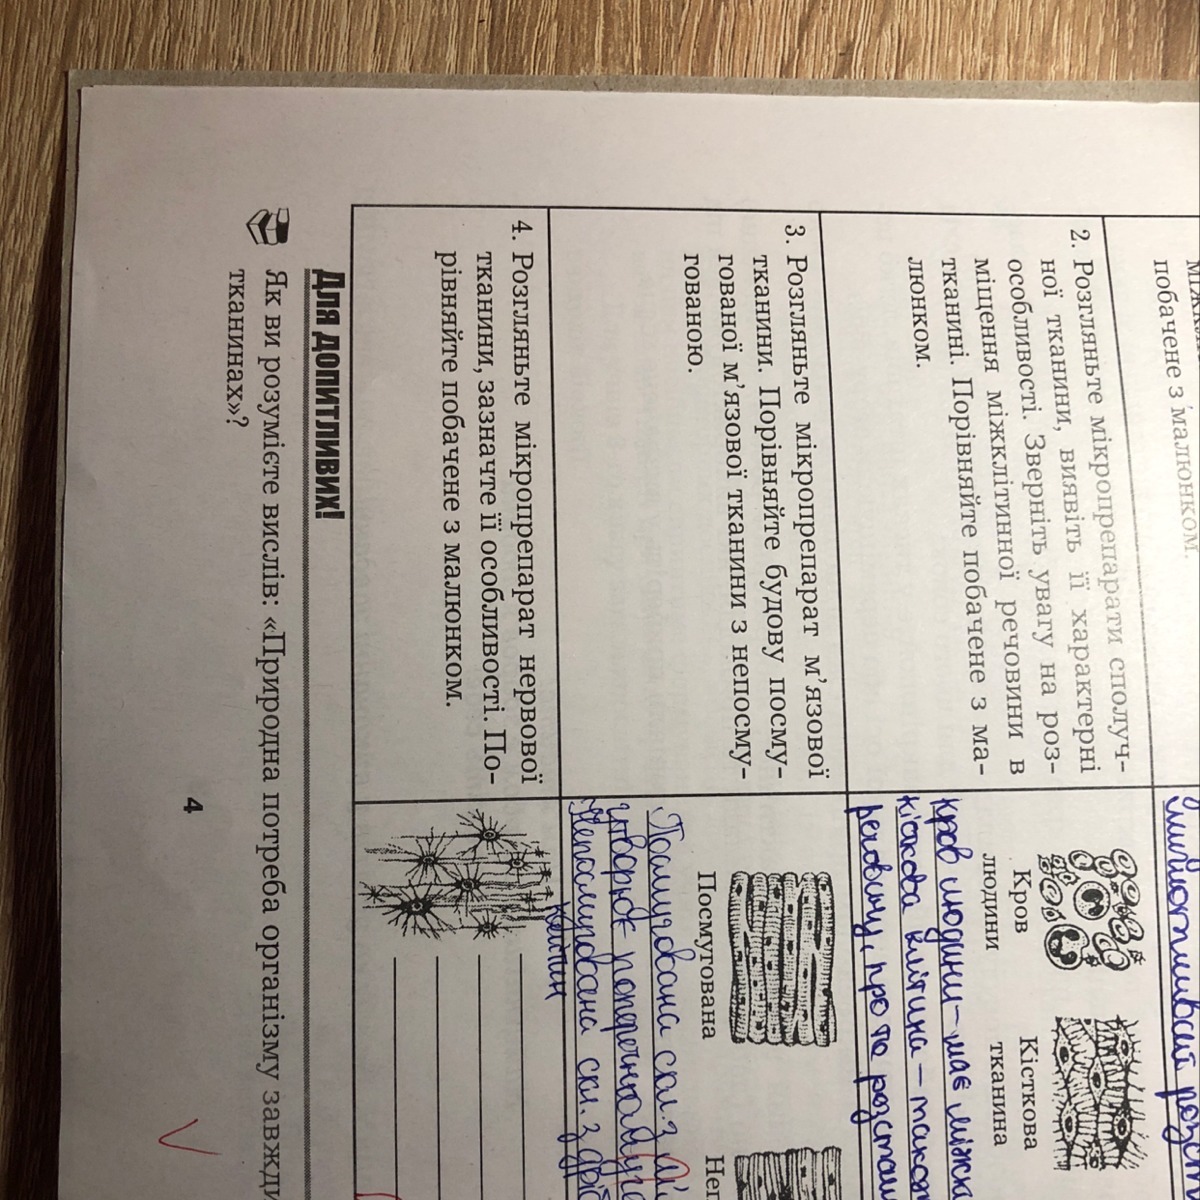 побачене з малюнком.
2. Розгляньте мікропрепарати сполуч-
ної тканини, виявіть її характерні
особливості. Зверніть увагу на роз-
міщення міжклітинної речовини в
тканині. Порівняйте побачене з ма-
люнком.
Кров
людини
Кісткова
тканина
кров людини - має міжк
кісткова клітина - також
речовину, про та розсташ
3. Розгляньте мікропрепарат м'язової
тканини. Порівняйте будову посму-
гованої м'язової тканини з непосму-
гованою.
Посмугована
Неп
Посмугована скл. з
утворює поперечно
Непосмугована скл. з
клітин
4. Розгляньте мікропрепарат нервової
тканини, зазначте її особливості. По-
рівняйте побачене з малюнком.
Для допитливих!
Як ви розумієте вислів: «Природна потреба організму завжди
тканинах»?
4